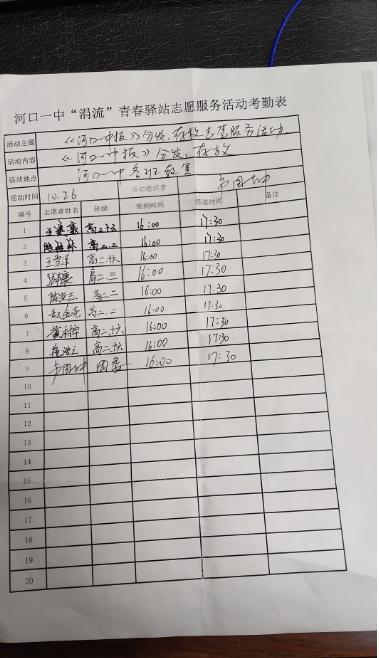 河口一中“涓流”青春驿站志愿服务活动考勤表
活动主题 《河口一中报》分发、存放志愿服务活动
活动内容 《河口一中报》分发、存放
活动地点 河口一中各班教室
活动时间 10.26 活动组织者
编号 志愿者姓名 班级 签到时间 签退时间 备注
1 16:00 17:30
2 16:00 17:30
3 高二.十六 16:00 17:30
4 高二.三 16:00 17:30
5 高二.二 16:00 17:30
6 高二.二 16:00 17:30
7 高二.十六 16:00 17:30
8 高二.十六 16:00 17:30
9 团委 16:00 17:30
10
11
12
13
14
15
16
17
18
19
20